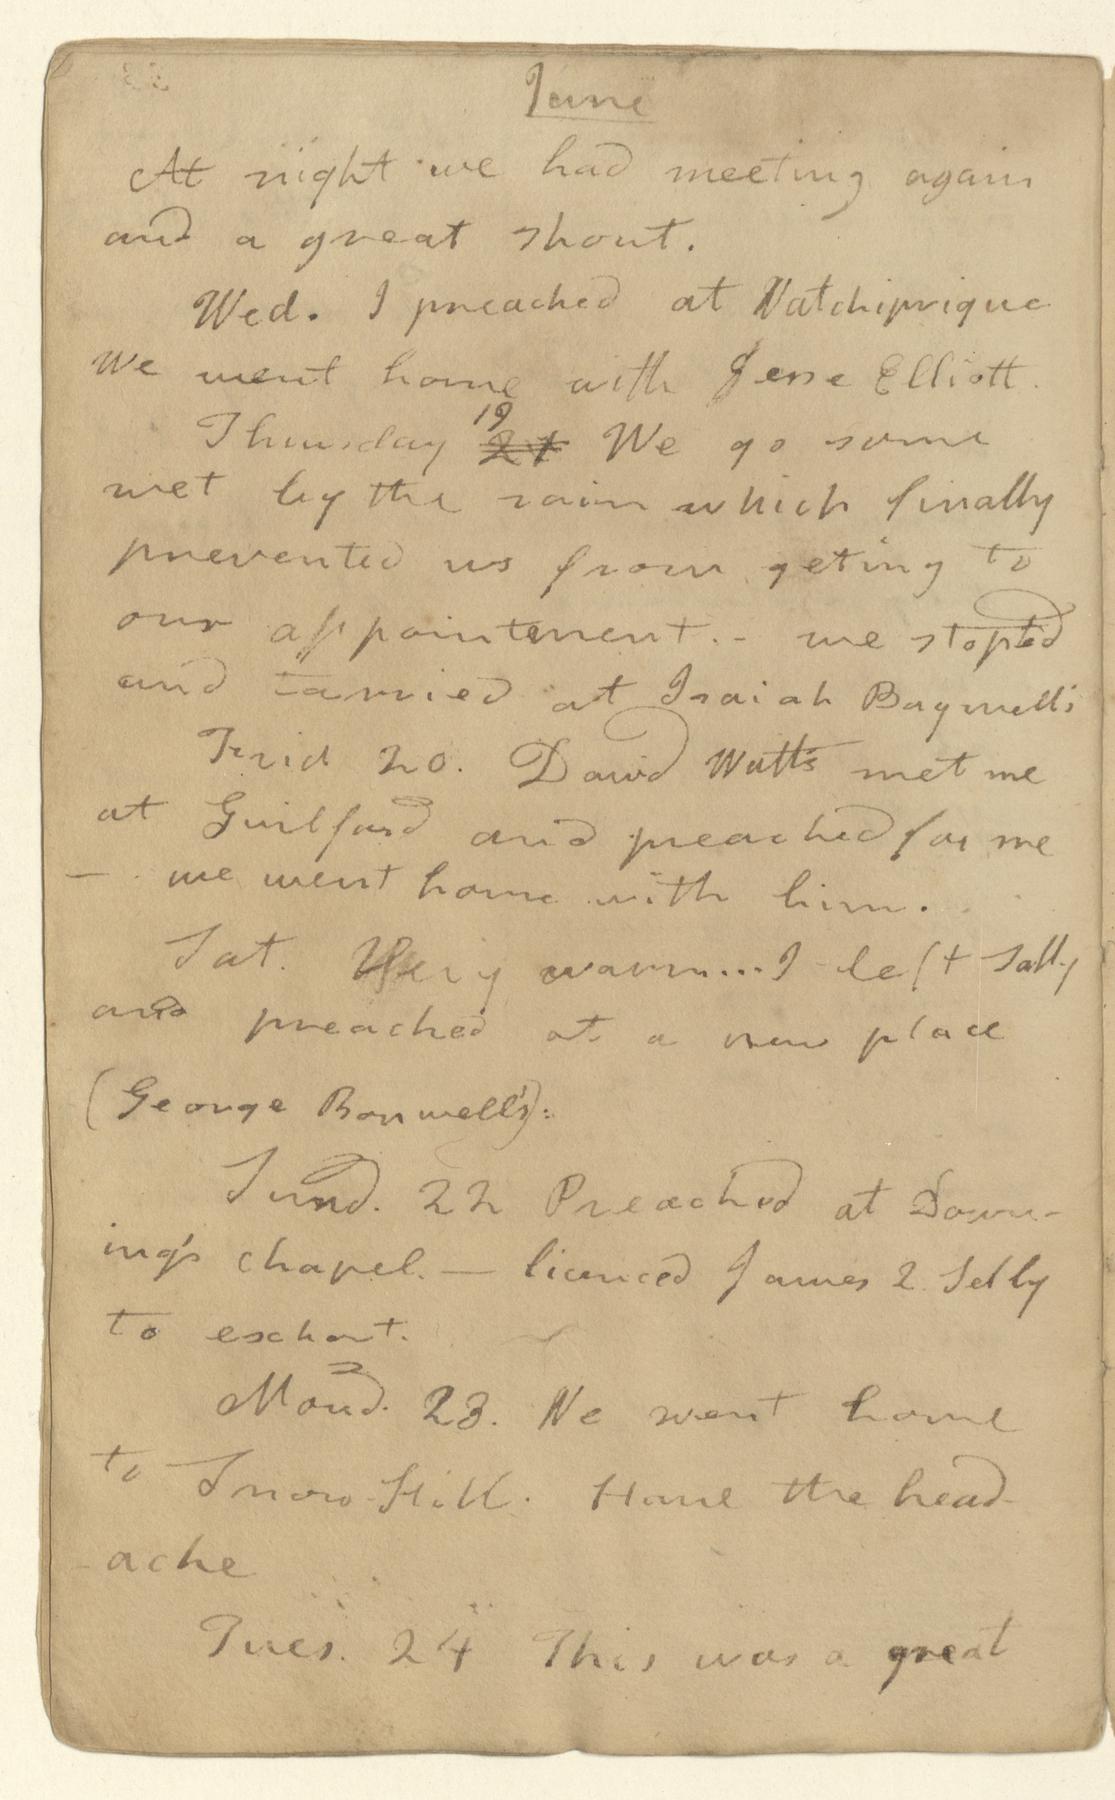 June
At night we had meeting again
and a great shout.
Wed. I preached at Natchiprique
We went home with Jesse Elliott.
Thursday 19 21 We go some
wet by the rain which finally
prevented us from geting to
our appointement. - we stopted
and tarried at Isaiah Bagwell's
Frid 20. David Watts met me
at Guilford and preached for me
— we went home with him.
Sat. Very warm... I left Sally
and preached at a new place
(George Bonwell's):
Sund. 22 Preached at Down-
ing's chapel. — licenced James 2. Selby
to exchort.
Mond. 23. We went home
to Snow-Hill. Have the head-
-ache
Tues. 24 This was a great